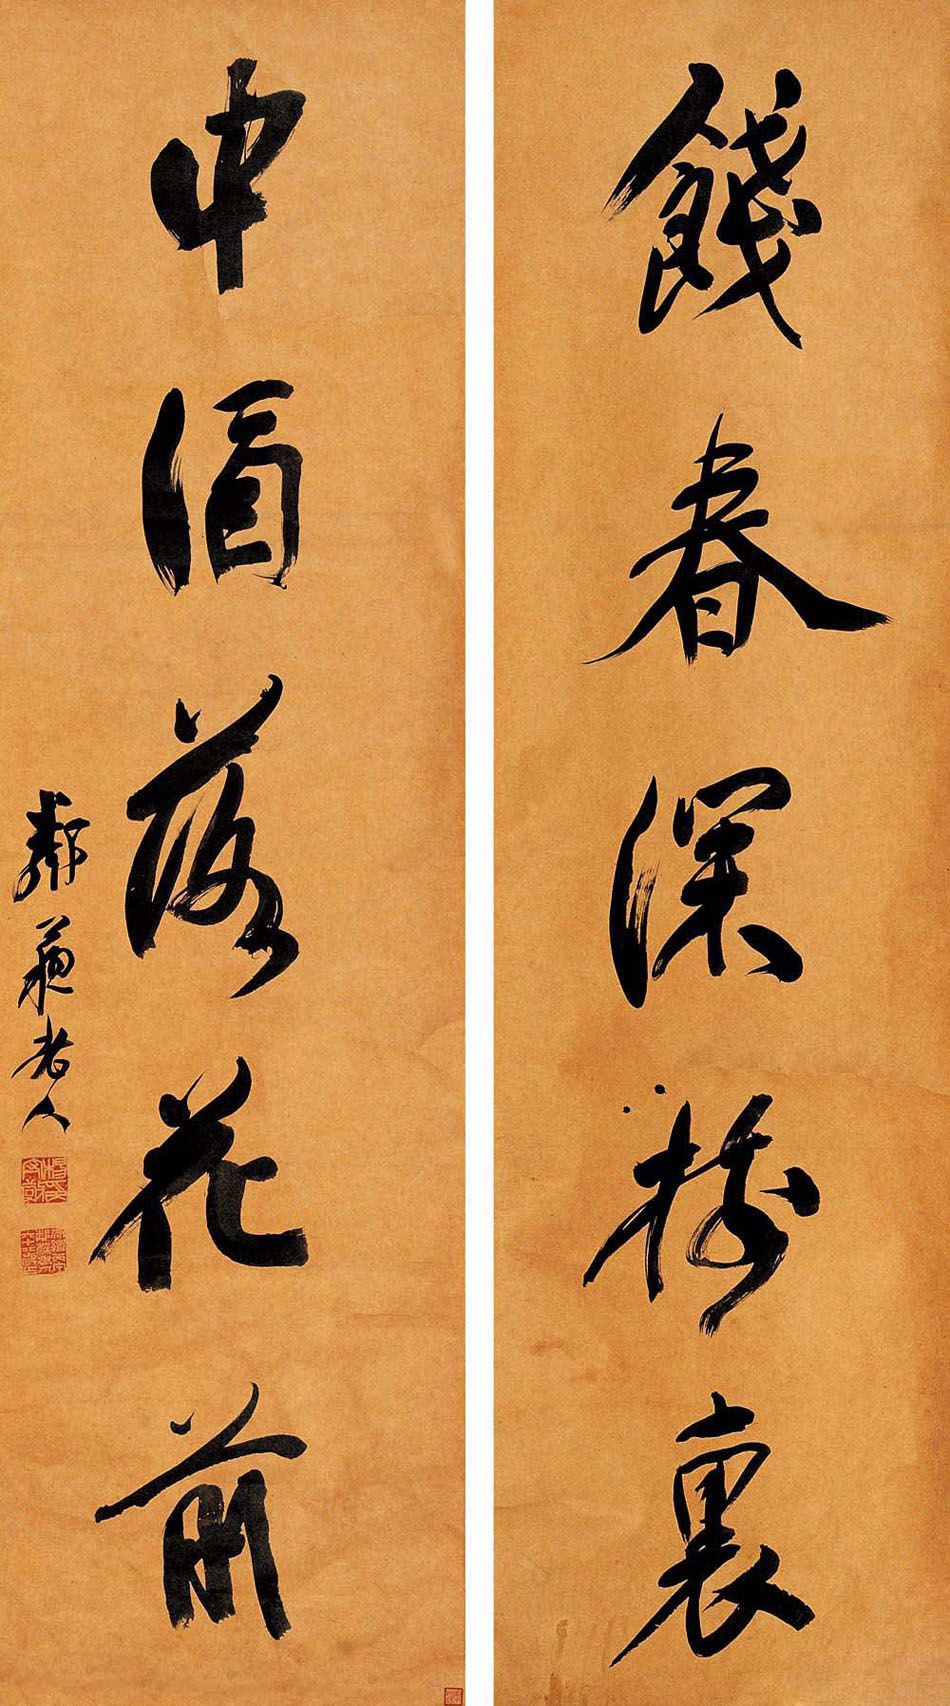 餞春深樹裏
中酒落花前
鄰蘇老人